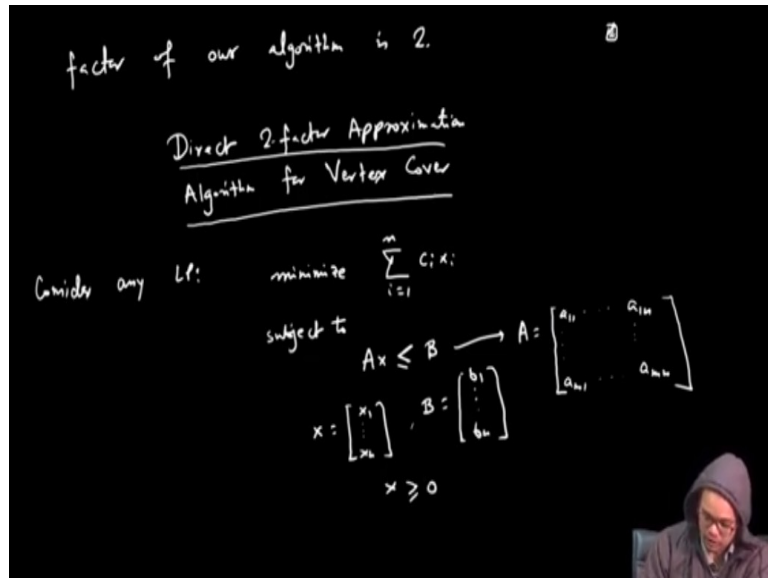 factor of our algorithm is 2.
Direct 2-factor Approximation
Algorithm for Vertex Cover
Consider any LP: minimize ∑_{i=1}^{n} c_i x_i
subject to
Ax ≤ B ⟶ A = [a_{11} ... a_{1n} ⋮ ⋮ a_{m1} ... a_{mn}]
x = [x_1 ⋮ x_n], B = [b_1 ⋮ b_n]
x ≥ 0